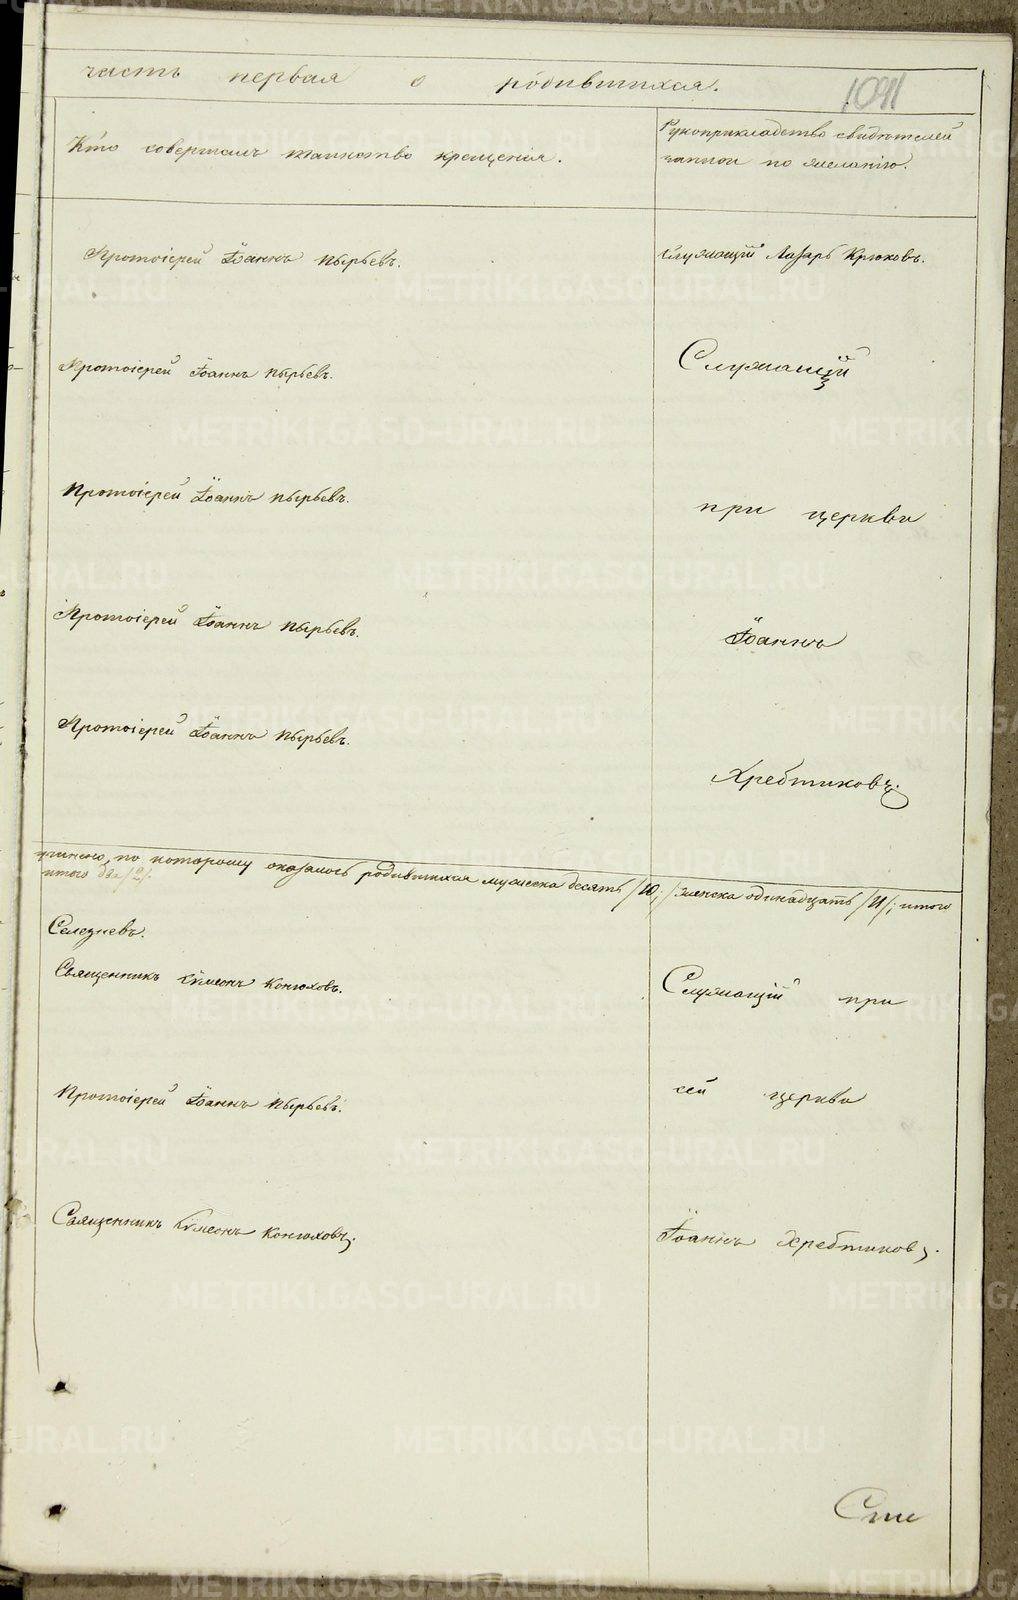 часть первая о родившихся.
1091
Кто совершалъ таинство крещенія.
Рукоприкладство свидѣтелей
записи по желанію.
Протоіерей Іоаннъ Пырьевъ.
Служащій Лазарь Крюковъ.
Протоіерей Іоаннъ Пырьевъ.
Служащій
Протоіерей Іоаннъ Пырьевъ.
при церкви
Протоіерей Іоаннъ Пырьевъ.
Іоаннъ
Протоіерей Іоаннъ Пырьевъ.
Хребтиковъ.
учинено, по которому оказалось родившихся мужеска десять /10,/ женска одинадцать /11/; итого
итого два /2/.
Селезневъ.
Священникъ Сѵмеонъ Конюховъ.
Служащій при
Протоіерей Іоаннъ Пырьевъ.
сей церкви
Священникъ Сѵмеонъ Конюховъ.
Іоаннъ Хребтиковъ.
METRIKI.GASO-URAL.RU